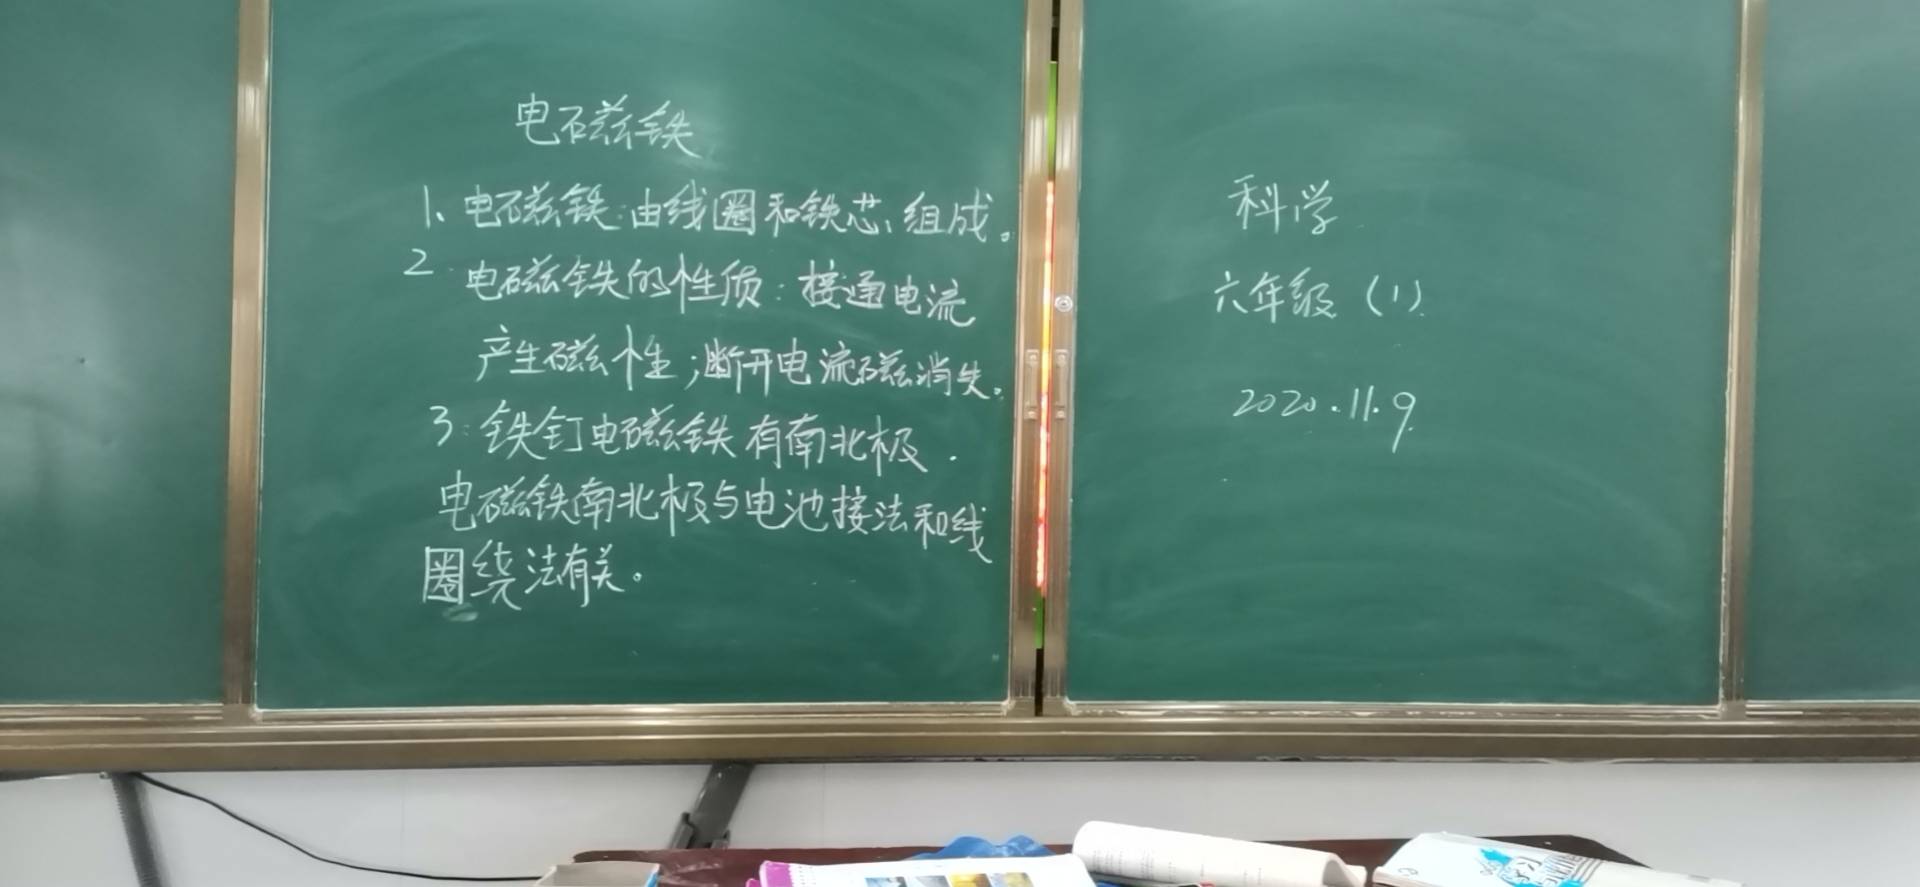 电磁铁
1、电磁铁:由线圈和铁芯、组成。
2 电磁铁的性质:接通电流
产生磁性;断开电流磁消失。
3:铁钉电磁铁有南北极.
电磁铁南北极与电池接法和线
圈绕法有关。
科学
六年级(1)
2020.11.9